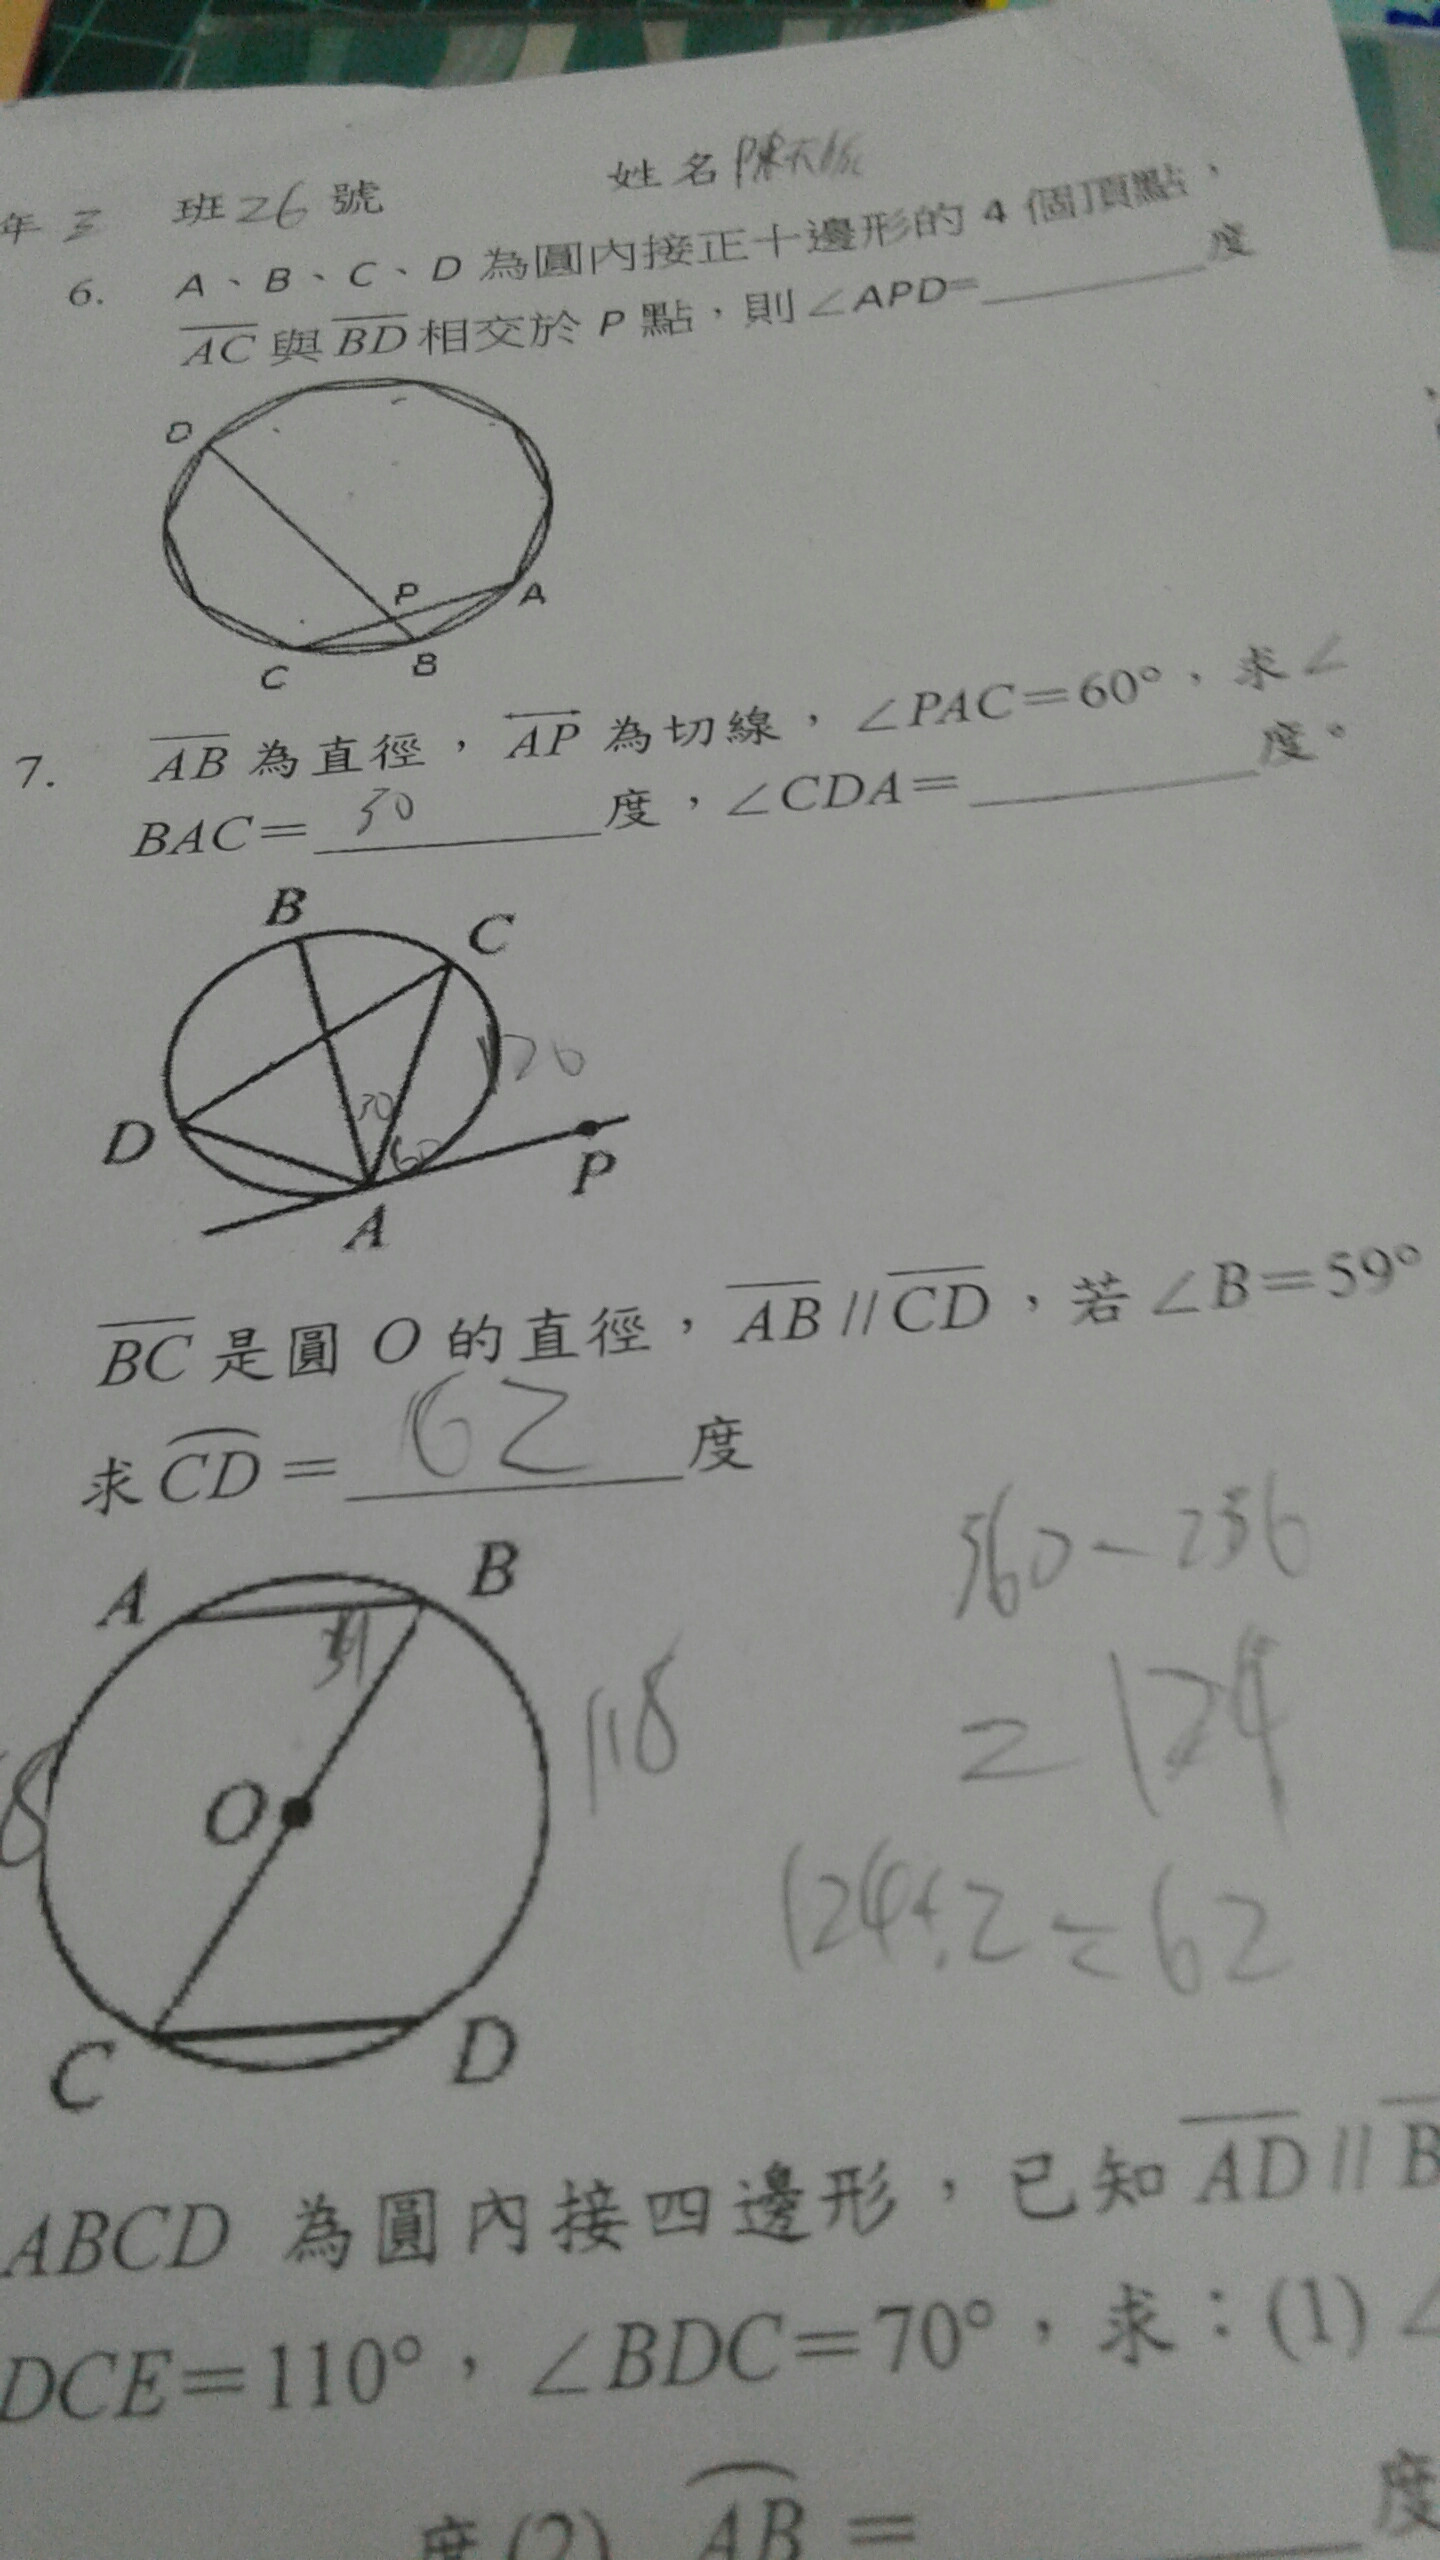 年 3 班 26 號 姓名 陳天
6. A、B、C、D 為圓內接正十邊形的 4 個頂點，
AC 與 BD 相交於 P 點，則∠APD= 度
D
P
A
C
B
7. AB 為直徑，AP 為切線，∠PAC=60°，求∠
BAC= 30 度，∠CDA= 度。
B
C
120
D
30
60
P
A
BC 是圓 O 的直徑，AB // CD，若∠B=59°
求 CD = 62 度
360-236
A
B
118
=124
O
8
124÷2=62
C
D
ABCD 為圓內接四邊形，已知 AD // B
DCE=110°，∠BDC=70°，求：(1) ∠
度(2) AB = 度